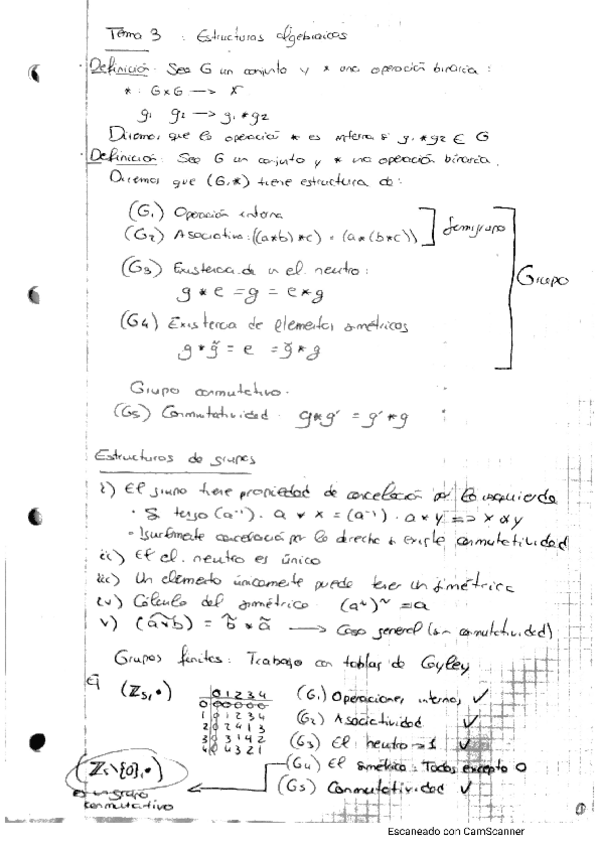 Tema 3 : Estructuras algebraicas
· Definición: Sea G un conjunto y * una operación binaria :
* : G×G → X
g₁ g₂ → g₁*g₂
Diremos que la operación * es interna si g₁*g₂ ∈ G
· Definición: Sea G un conjunto y * una operación binaria.
Diremos que (G,*) tiene estructura de:
(G₁) Operación interna
(G₂) Asociativa: ((a*b)*c) = (a*(b*c)) Semigrupo
(G₃) Existencia de un el. neutro: Grupo
g * e = g = e*g
(G₄) Existencia de elementos simétricos
g * g̃ = e = g̃ * g
Grupo conmutativo.
(G₅) Conmutatividad. g*g' = g'*g
Estructuras de grupos
i) El grupo tiene propiedad de cancelación por la izquierda
· Si tengo (a⁻¹) · a * x = (a⁻¹) · a * y => x y
- Igualmente cancelación por la derecha existe conmutatividad
ii) El el. neutro es único
iii) Un elemento únicamente puede tener un simétrico
iv) Cálculo del simétrico (a~)~ = a
v) (a*b)~ = b̃ * ã → Caso general (sin conmutatividad)
Grupos finitos: Trabajo con tablas de Cayley
Ej (ℤ₅, •)
0 1 2 3 4
0 0 0 0 0 0
1 0 1 2 3 4
2 0 2 4 1 3
3 0 3 1 4 2
4 0 4 3 2 1
(G₁) Operaciones internas ✓
(G₂) Asociatividad ✓
(G₃) El neutro → 1 ✓
(G₄) El simétrico : Todos excepto 0
(G₅) Conmutatividad ✓
(ℤ₅\{0}, •)
es un grupo
conmutativo
①
Escaneado con CamScanner